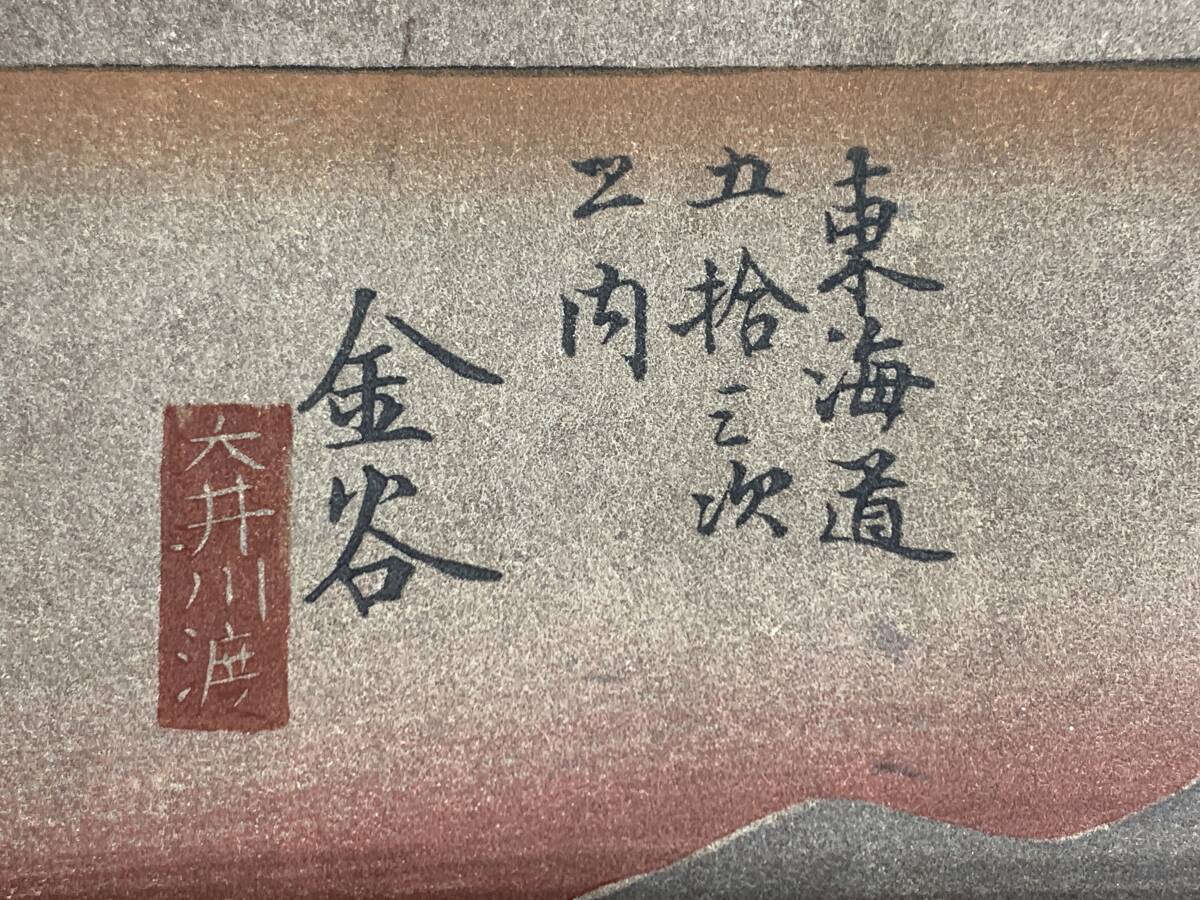 東海道
五拾三次
之内
金谷
大井川渡